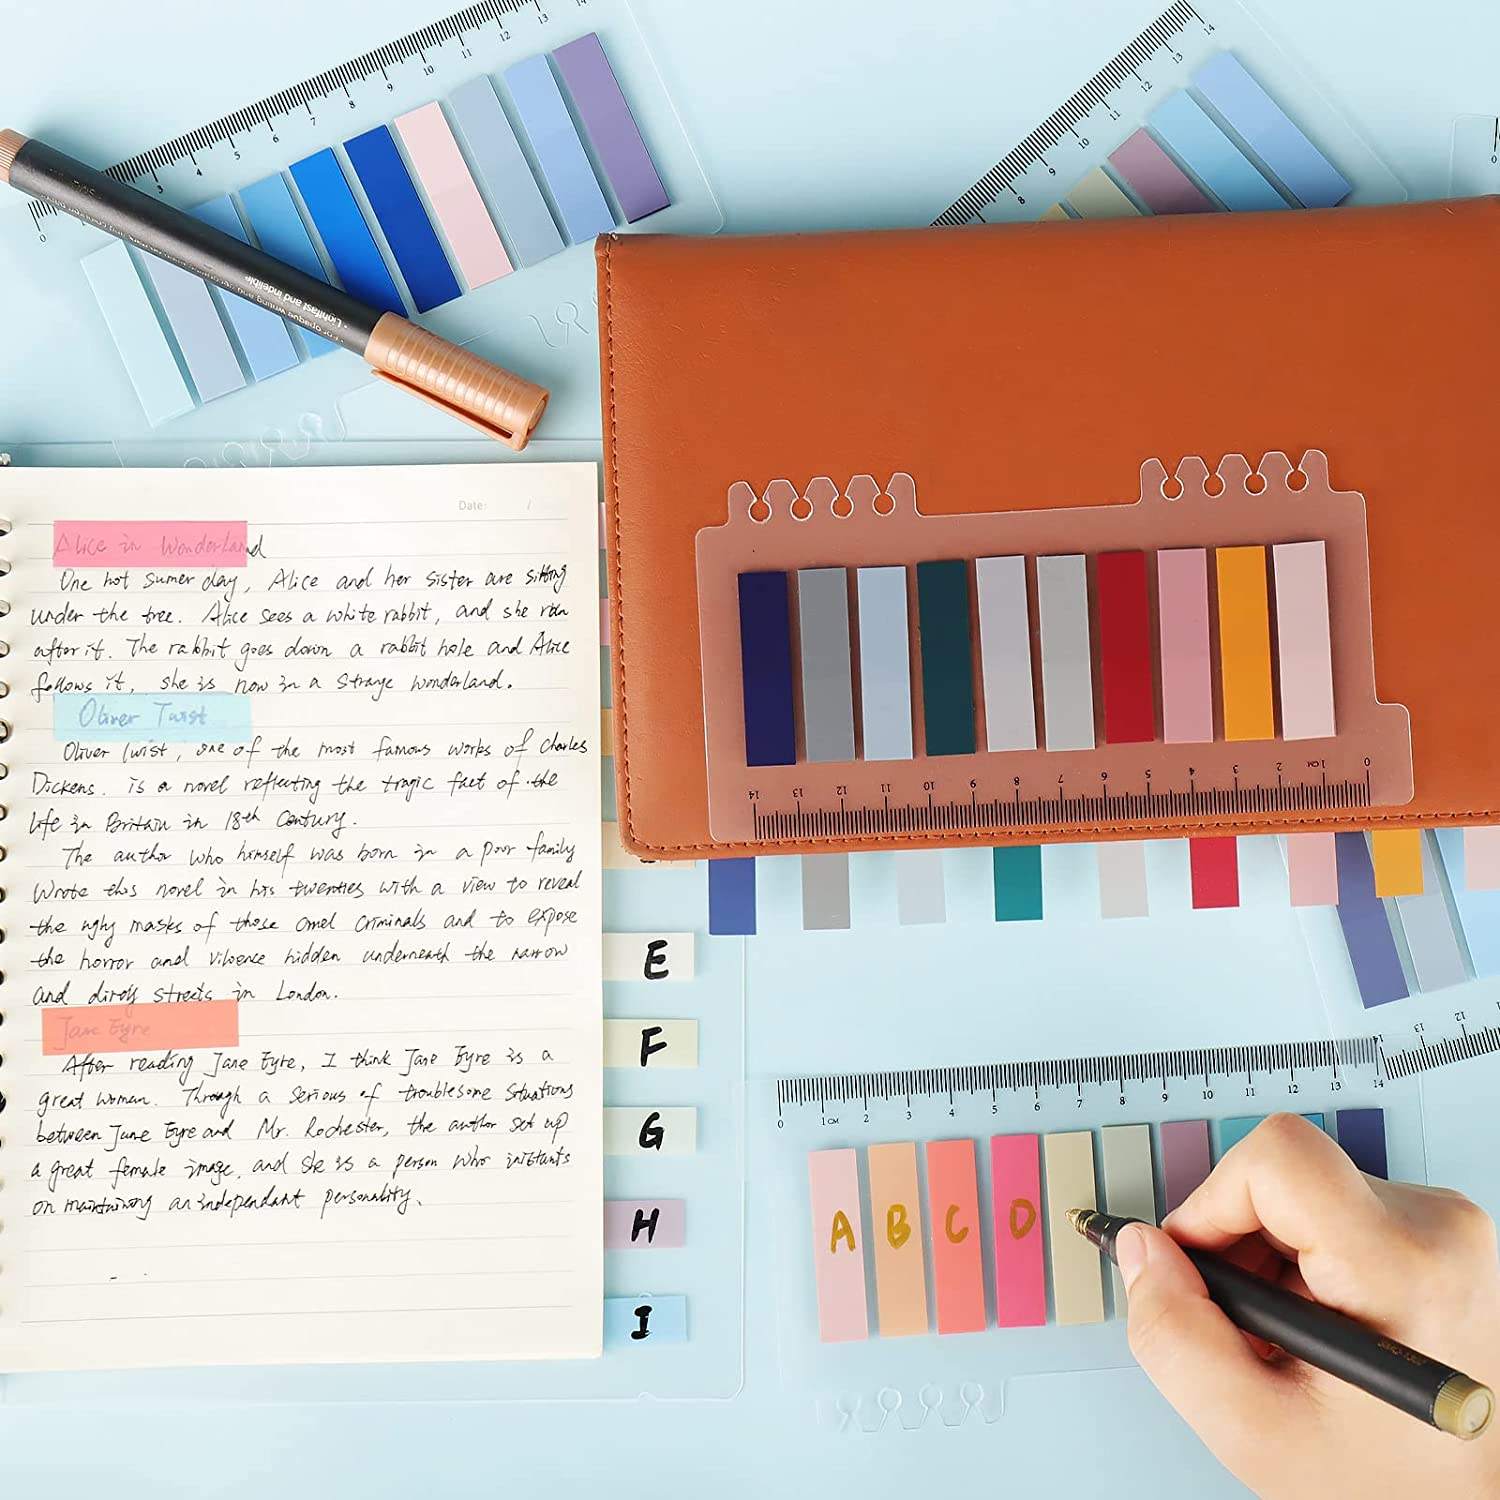 0 3 4 5 6 7 8 9 10 11 12 13 14
8 9 10 11 12 13 14
0
• For opaque writing and
• Lightfast and indelible*
Date: /
Alice in Wonderland
One hot sumer day, Alice and her sister are sitting
under the tree. Alice sees a white rabbit, and she run
after it. The rabbit goes down a rabbit hole and Alice
follows it, she is now in a strange wonderland.
Oliver Twist
Oliver Twist, one of the most famous works of Charles
Dickens. is a novel reflecting the tragic fact of the
life in Britain in 18th Century.
The author who himself was born in a poor family
wrote this novel in his twenties with a view to reveal
the ugly masks of those cruel criminals and to expose
the horror and vilence hidden underneath the narrow
and dirty streets in London.
Jane Eyre
After reading Jane Eyre, I think Jane Eyre is a
great woman. Through a serious of troublesome situations
between Jane Eyre and Mr. Rochester, the author set up
a great female image. and she is a person who
on maintaining an independant personality.
E
F
G
H
I
14 13 12 11 10 9 8 7 6 5 4 3 2 1CM 0
0 1CM 2 3 4 5 6 7 8 9 10 11 12 13 14
14 13 12
A B C D